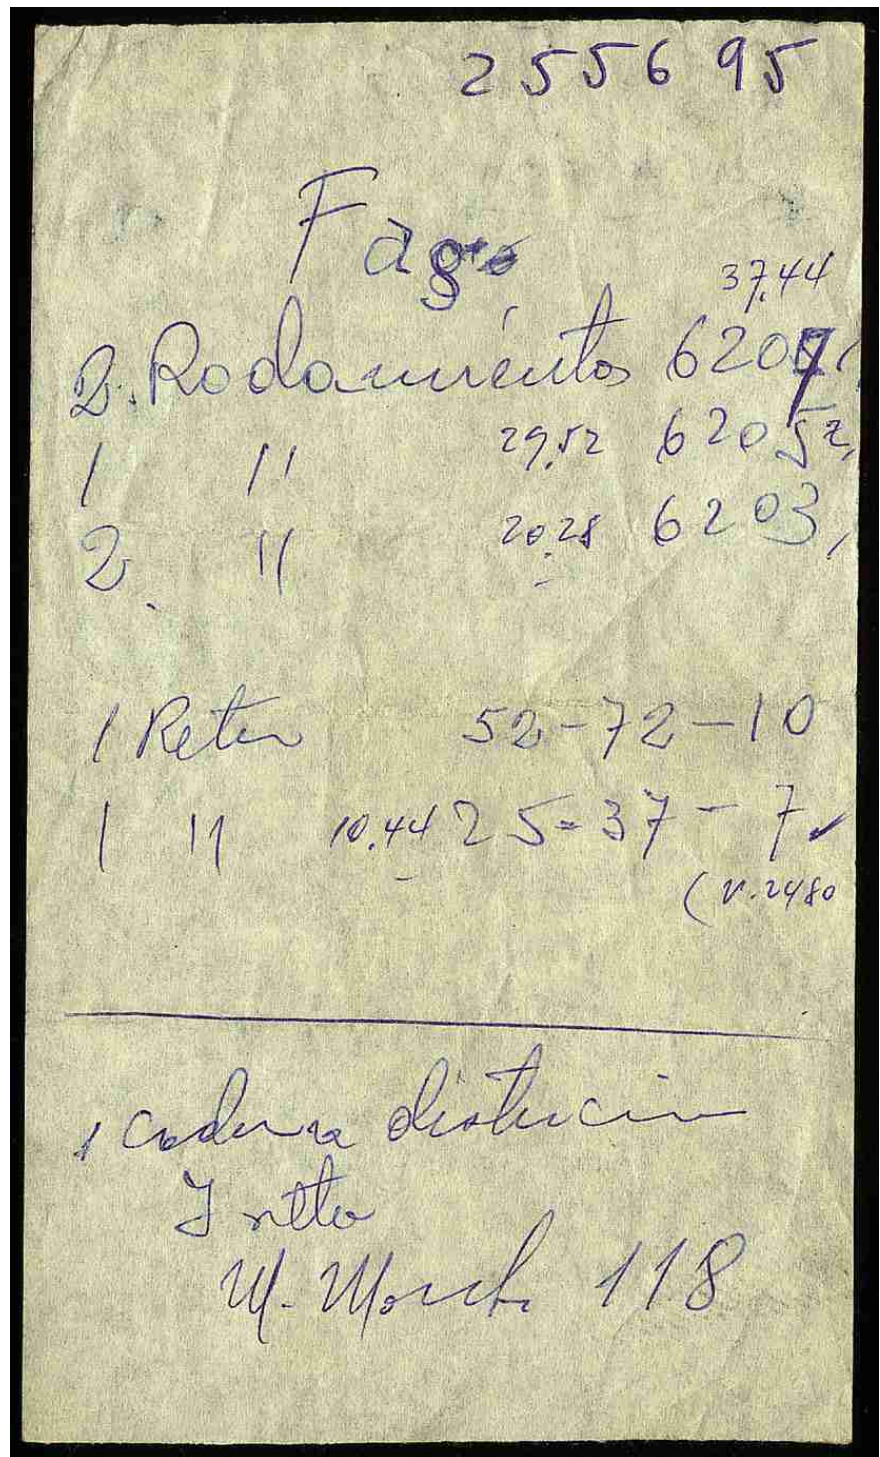 255695
Fag
37,44
2. Rodamientos 6207
1 11 29,52 6205 z,
2. 11 20,28 6203,
1 Reten 52-72-10
1 11 10,44 25-37-7
(v.2480
1 Cadena distribucion
118